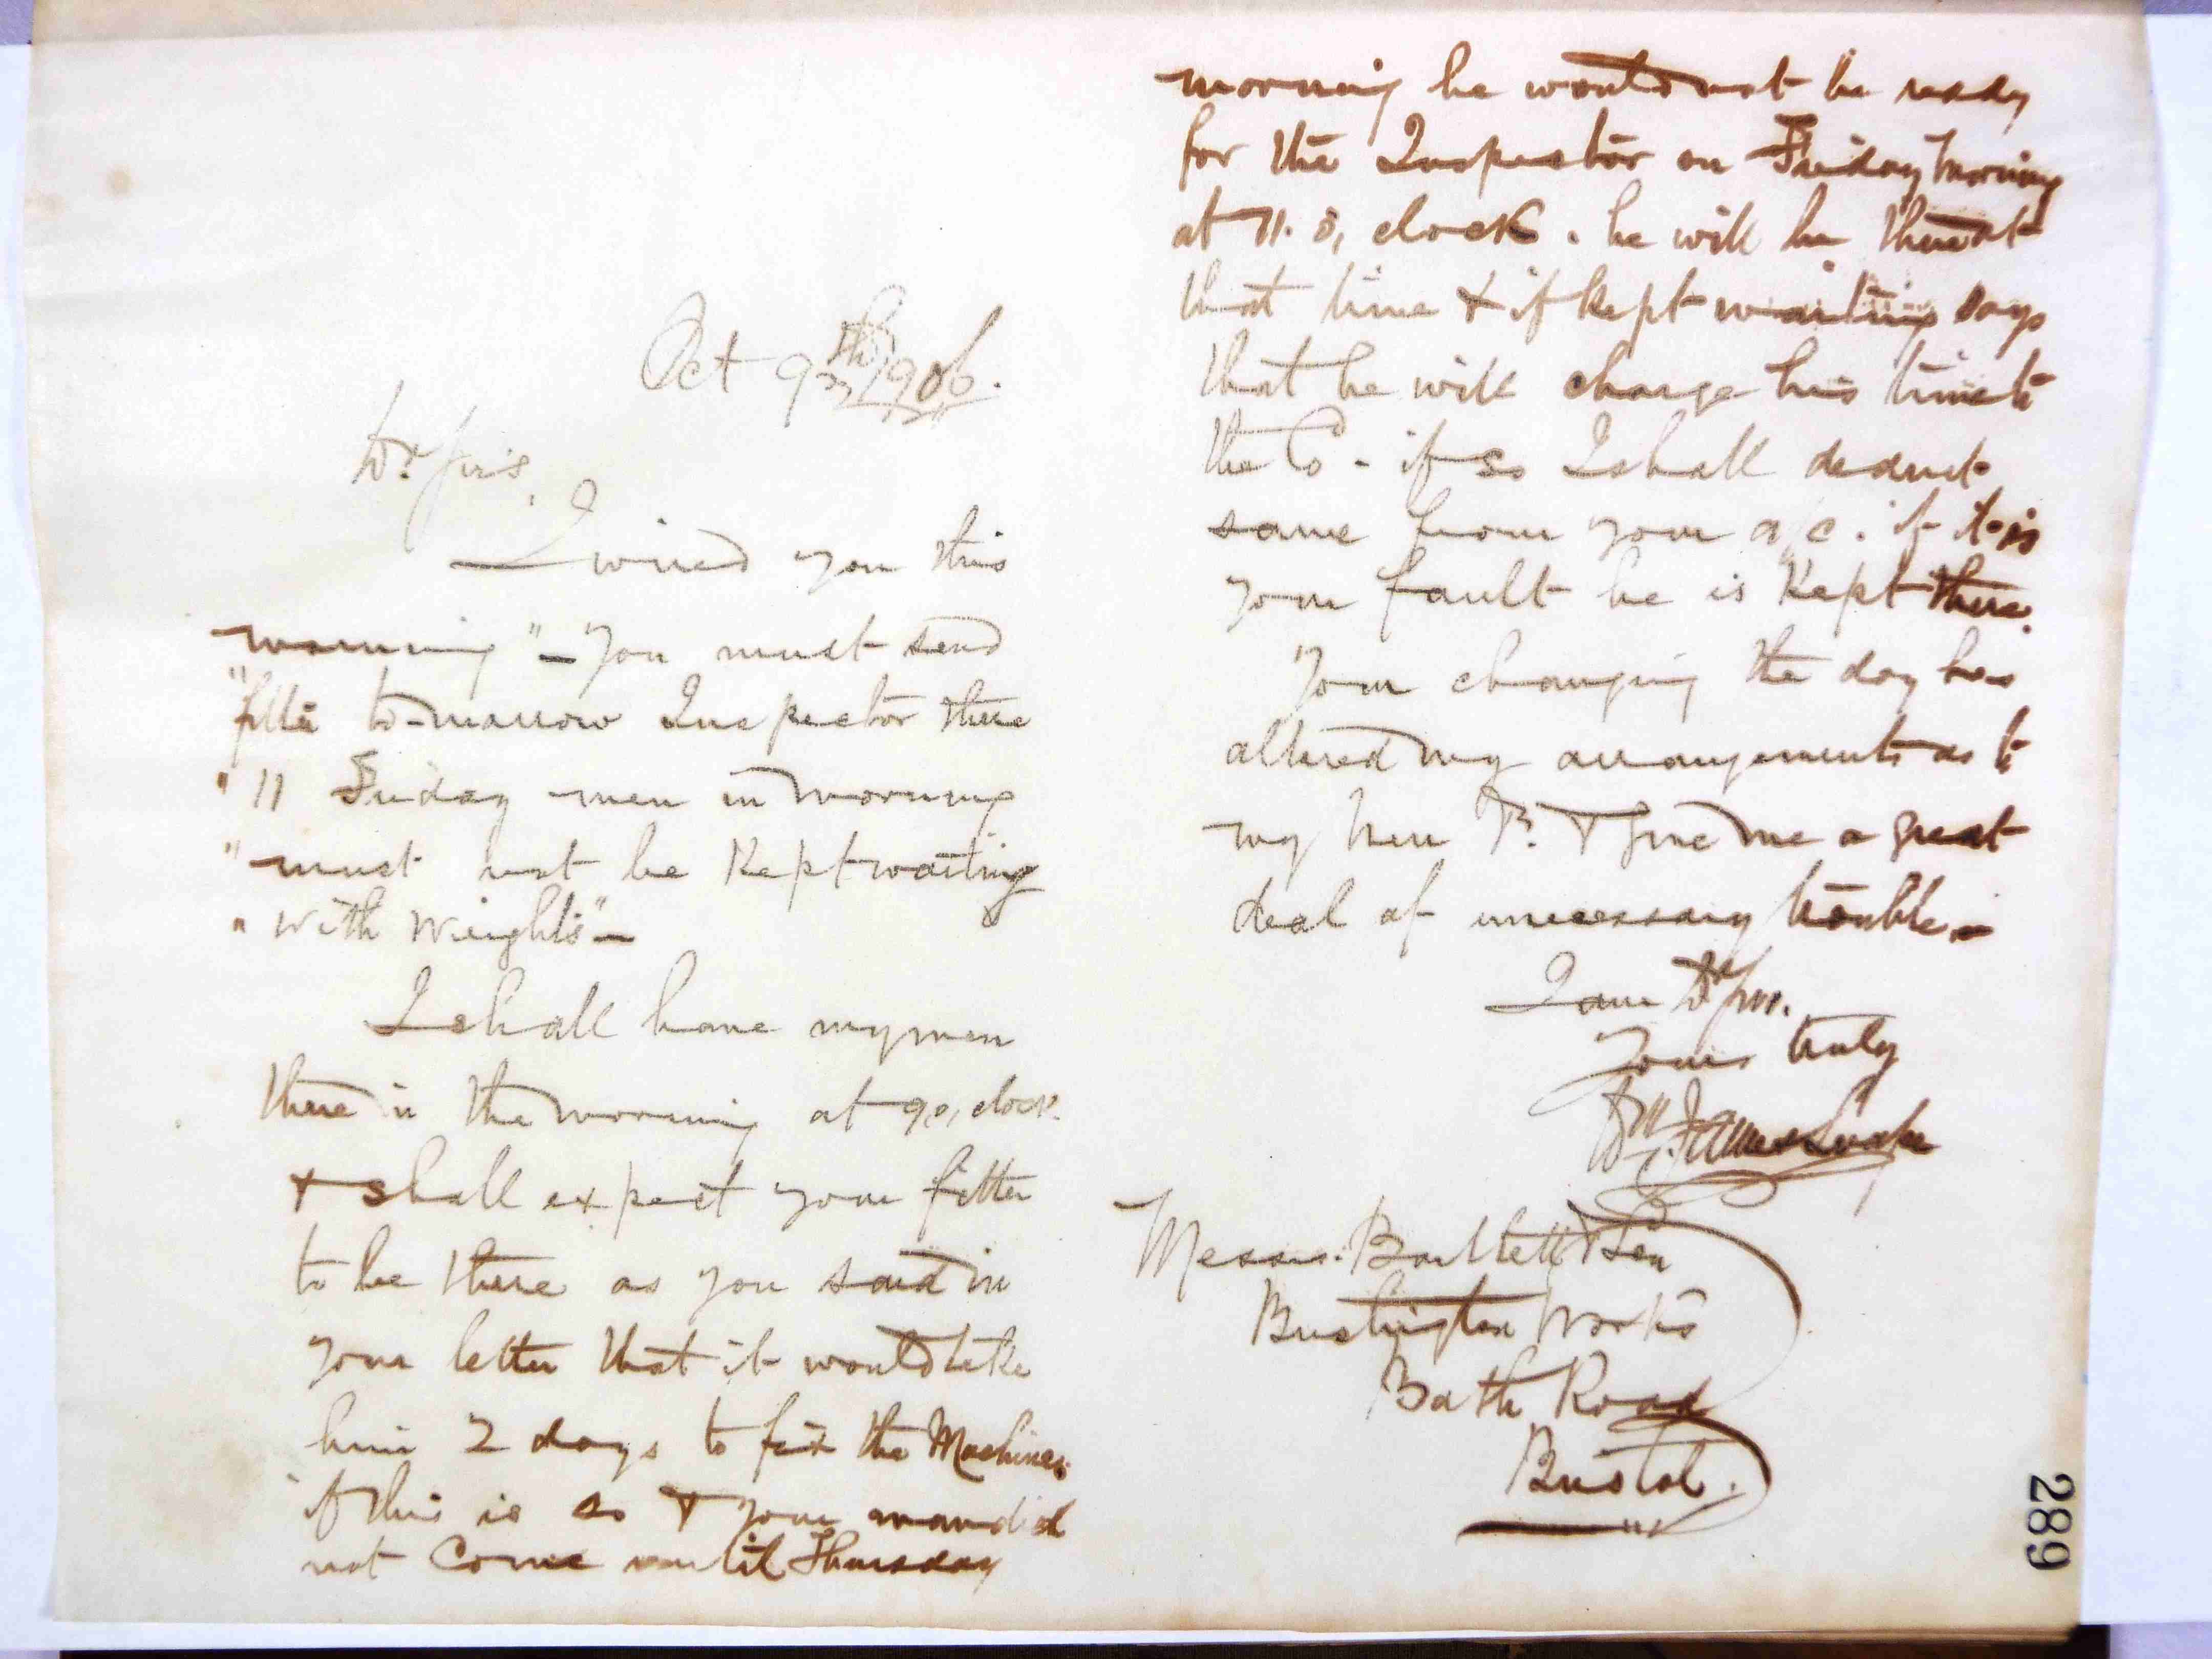 Oct 9th 1906.
Dr Sirs,
I wired you this
morning "— You must send
"fitter to-morrow Inspector there
" 11 Friday men in morning
" must not be kept waiting
" with weights" —
I shall have my men
there in the morning at 9 o,clock
& shall expect your fitter
to be there as you said in
your letter that it would take
him 2 days to fix the Machines
if this is so & your man did
not come until Thursday
morning he would not be ready
for the Inspector on Friday morning
at 11. o, clock. he will be there at
that time & if kept waiting says
that he will charge his time to
the Co - if so I shall deduct
same from your a/c. if it is
your fault he is kept there.
Your changing the day has
altered my arrangements as to
my men & give me a great
deal of unnecessary trouble —
I am Dr Sirs.
Yours truly
Wm. James
Messrs. Bartlett & Son
Works
Bath Road
Bristol.
289